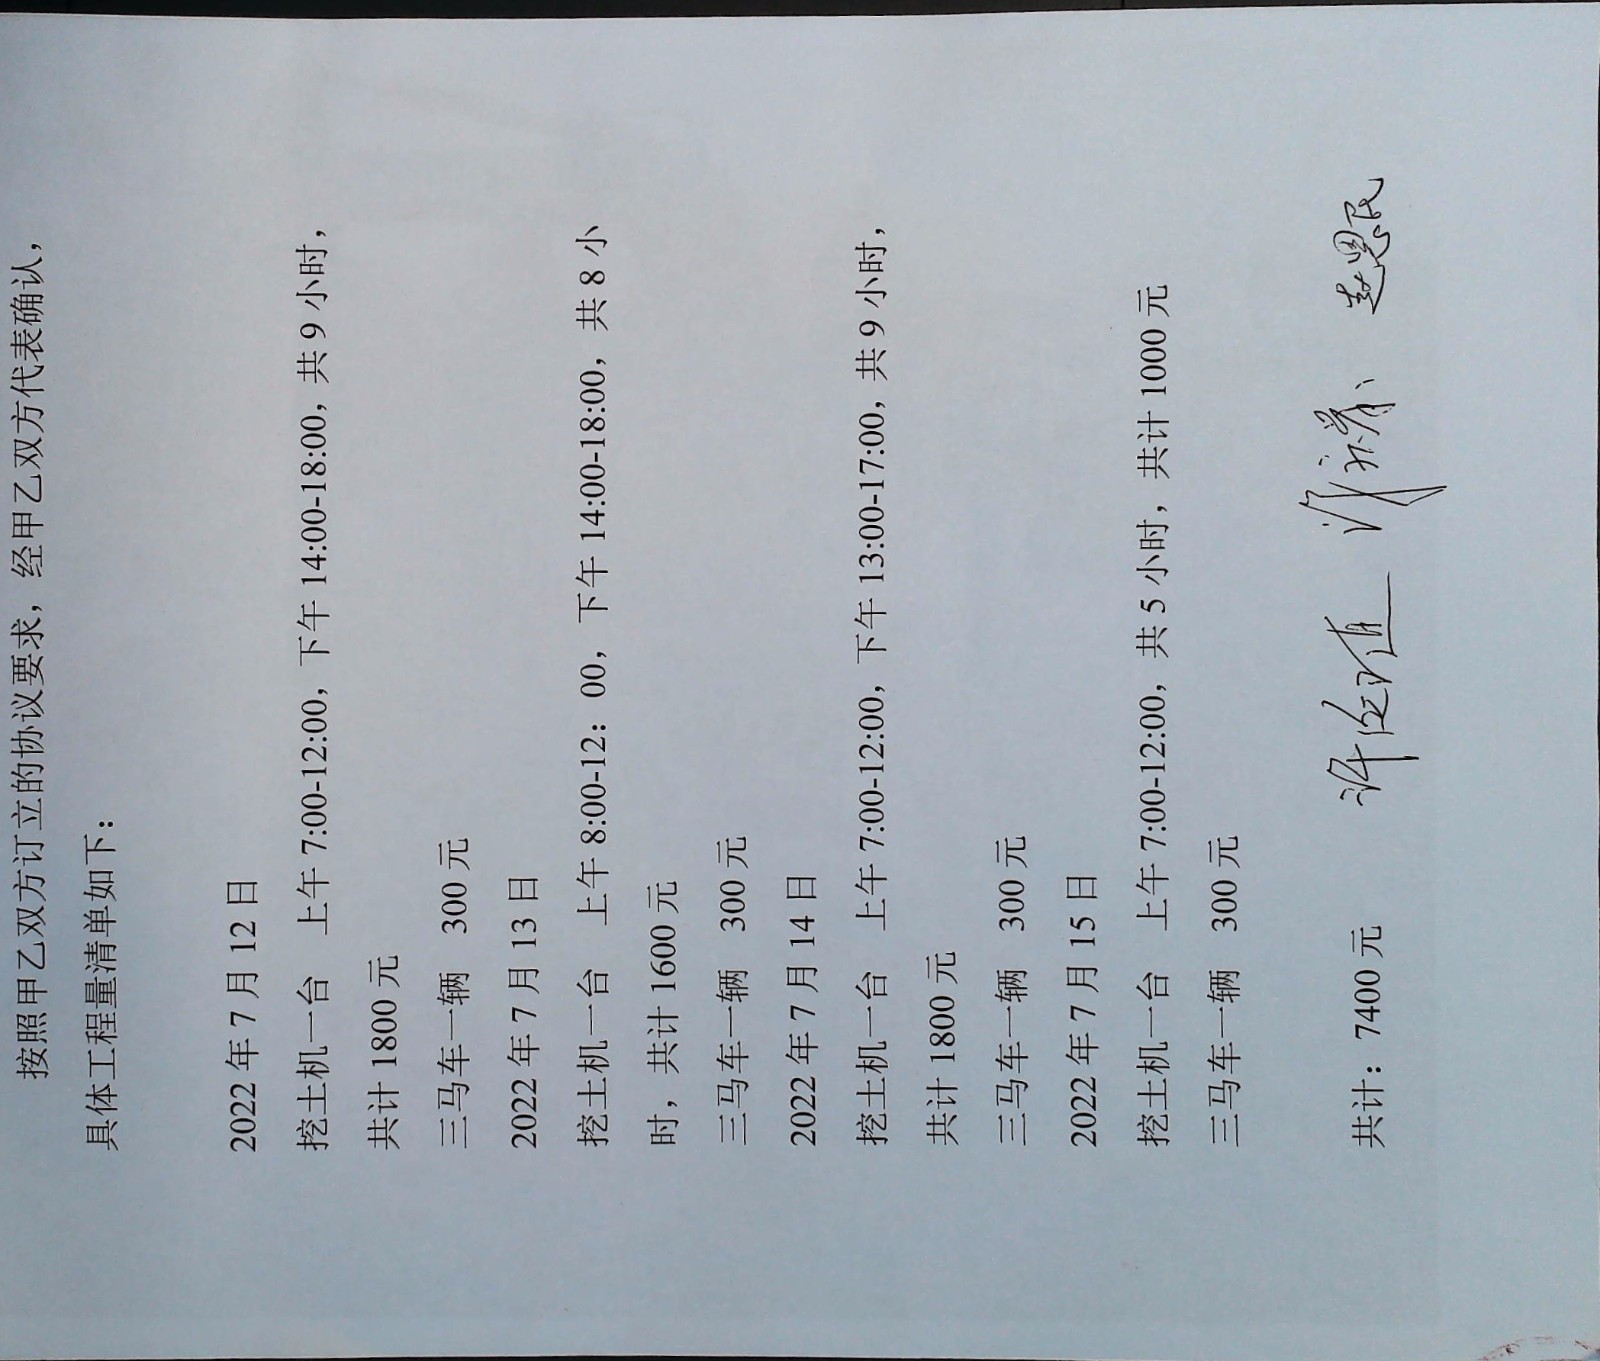 按照甲乙双方订立的协议要求，经甲乙双方代表确认，
具体工程量清单如下：
2022 年 7 月 12 日
挖土机一台 上午 7:00-12:00，下午 14:00-18:00，共 9 小时，
共计 1800 元
三马车一辆 300 元
2022 年 7 月 13 日
挖土机一台 上午 8:00-12：00，下午 14:00-18:00，共 8 小
时，共计 1600 元
三马车一辆 300 元
2022 年 7 月 14 日
挖土机一台 上午 7:00-12:00，下午 13:00-17:00，共 9 小时，
共计 1800 元
三马车一辆 300 元
2022 年 7 月 15 日
挖土机一台 上午 7:00-12:00，共 5 小时，共计 1000 元
三马车一辆 300 元
共计：7400 元 赵恩民